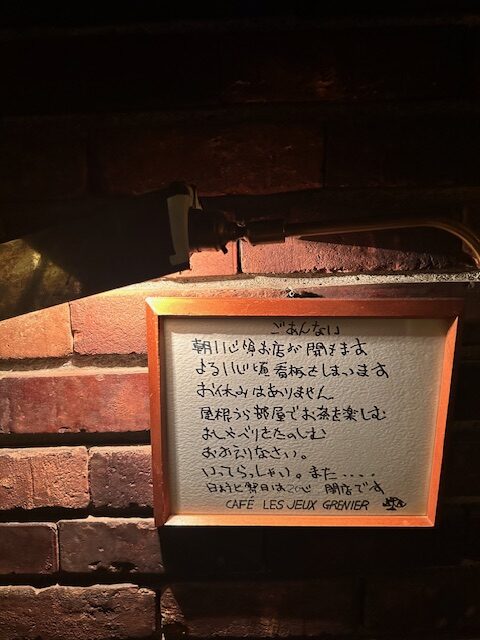 ごあんない
朝11心頃お店が開きます
よる11心頃看板をしまいます
お休みはありません
屋根うら部屋でお茶を楽しむ
おしゃべりをたのしむ
おかえりなさい。
いってらっしゃい。また....
日よう と 祭日は 20心 閉店です
CAFÉ LES JEUX GRENIER